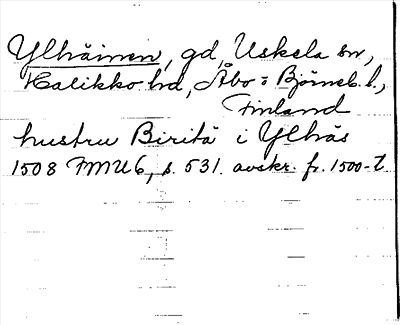 Ylhäinen, gd, Uskela sn,
Halikko hd, Åbo o Björneb. l.,
Finland
hustru Biritä i Ylhäs
1508 FMU 6, s. 531. avskr. fr. 1500-t.